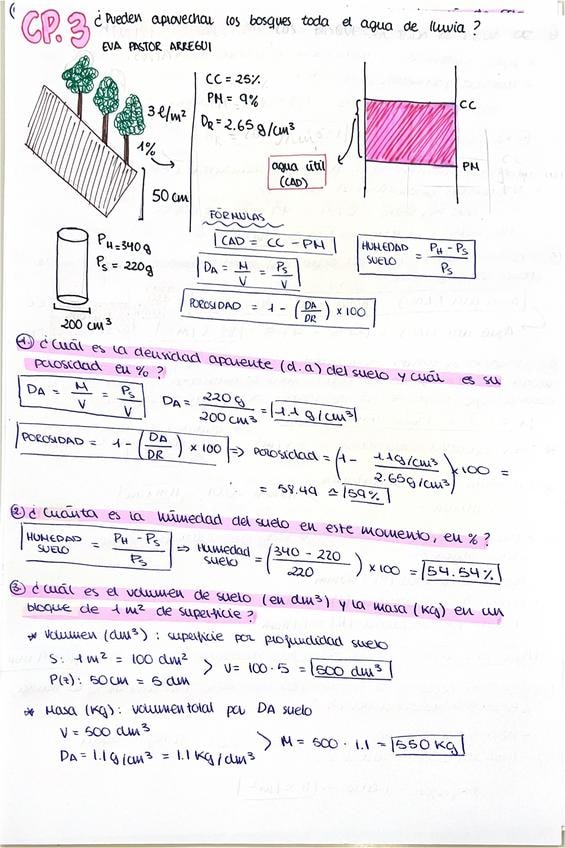 CP.3 ¿Pueden aprovechar los bosques toda el agua de lluvia?
EVA PASTOR ARREGUI
3 l/m²
1%
50 cm
CC = 25%
PM = 9%
DR = 2.65 g/cm³
CC
agua útil
(CAD)
PM
PH = 340 g
PS = 220 g
200 cm³
FÓRMULAS
CAD = CC - PM
DA = M/V = PS/V
HUMEDAD SUELO = PH - PS / PS
POROSIDAD = 1 - (DA/DR) x 100
1. ¿Cuál es la densidad aparente (d.a) del suelo y cuál es su
porosidad en %?
DA = M/V = PS/V DA = 220 g / 200 cm³ = 1.1 g/cm³
POROSIDAD = 1 - (DA/DR) x 100 ⇒ POROSIDAD = (1 - 1.1 g/cm³ / 2.65 g/cm³) x 100 =
= 58.49 ≅ 59%
2. ¿Cuánta es la humedad del suelo en este momento, en %?
HUMEDAD SUELO = PH - PS / PS ⇒ Humedad suelo = (340 - 220 / 220) x 100 = 54.54%
3. ¿Cuál es el volumen de suelo (en dm³) y la masa (kg) en un
bloque de 1 m² de superficie?
* Volumen (dm³): superficie por profundidad suelo
S: 1 m² = 100 dm²
P(z): 50 cm = 5 dm
> V = 100 · 5 = 500 dm³
* Masa (kg): volumen total por DA suelo
V = 500 dm³
DA = 1.1 g/cm³ = 1.1 kg/dm³
> M = 500 · 1.1 = 550 kg